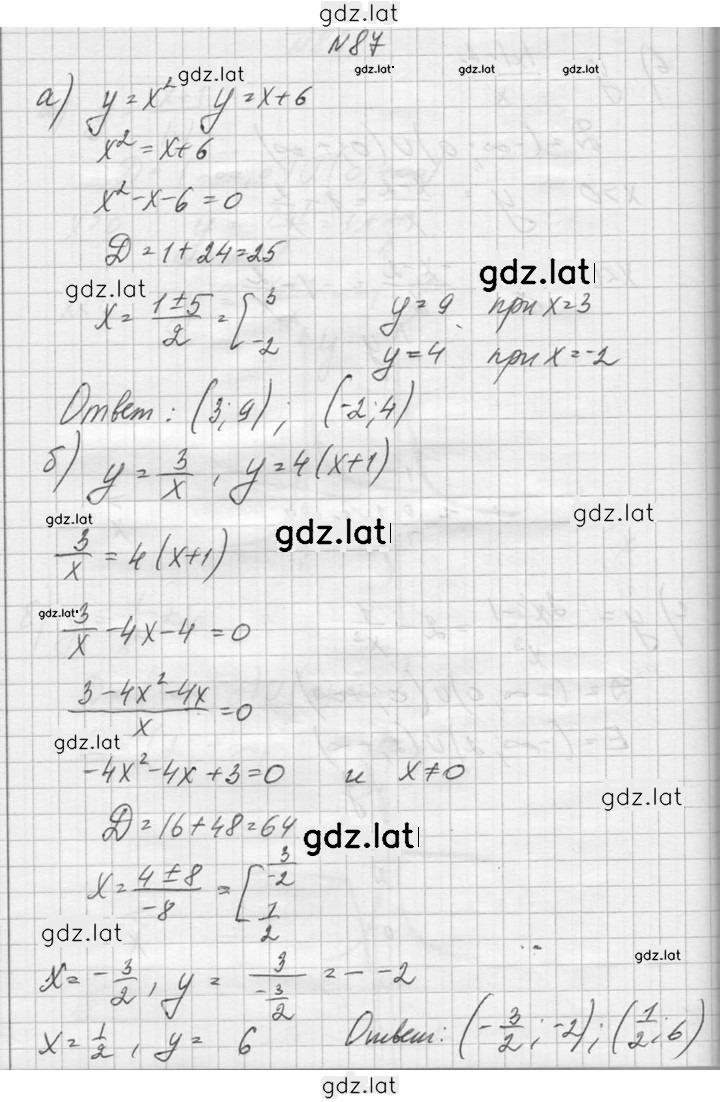 gdz.lat
N87
gdz.lat gdz.lat gdz.lat gdz.lat
а) y = x² y = x+6
x² = x+6
x² - x - 6 = 0
D = 1 + 24 = 25
gdz.lat gdz.lat
x = (1±5)/2 = [ 3 -2
y = 9 при x = 3
y = 4 при x = -2
Ответ: (3; 9); (-2; 4)
б) y = 3/x, y = 4(x+1)
gdz.lat gdz.lat gdz.lat
3/x = 4(x+1)
gdz.lat
3/x - 4x - 4 = 0
(3 - 4x² - 4x)/x = 0
gdz.lat
-4x² - 4x + 3 = 0 и x ≠ 0
gdz.lat
D = 16 + 48 = 64
gdz.lat
x = (4±8)/-8 = [ 3/-2 1/2
gdz.lat
gdz.lat
x = -3/2, y = 3/(-3/2) = - -2
x = 1/2, y = 6 Ответ: (-3/2; -2); (1/2; 6)
gdz.lat